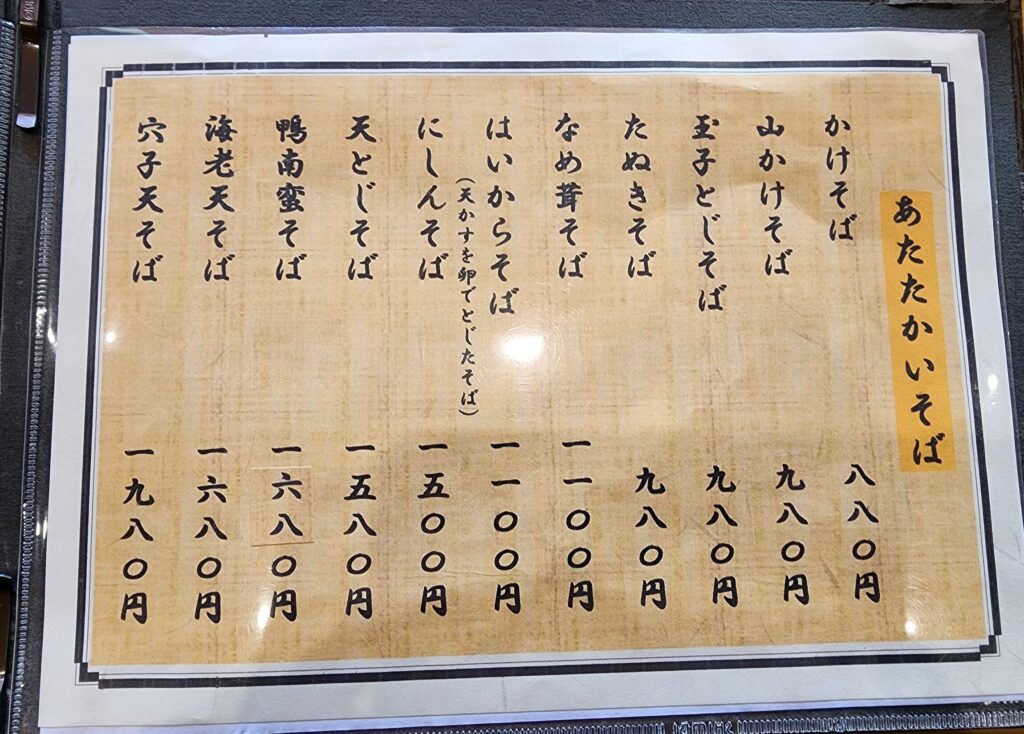 あたたかいそば
かけそば 八八〇円
山かけそば 九八〇円
玉子とじそば 九八〇円
たぬきそば 九八〇円
なめ茸そば 一一〇〇円
はいからそば 一一〇〇円
(天かすを卵でとじたそば)
にしんそば 一五〇〇円
天とじそば 一五八〇円
鴨南蛮そば 一六八〇円
海老天そば 一六八〇円
穴子天そば 一九八〇円